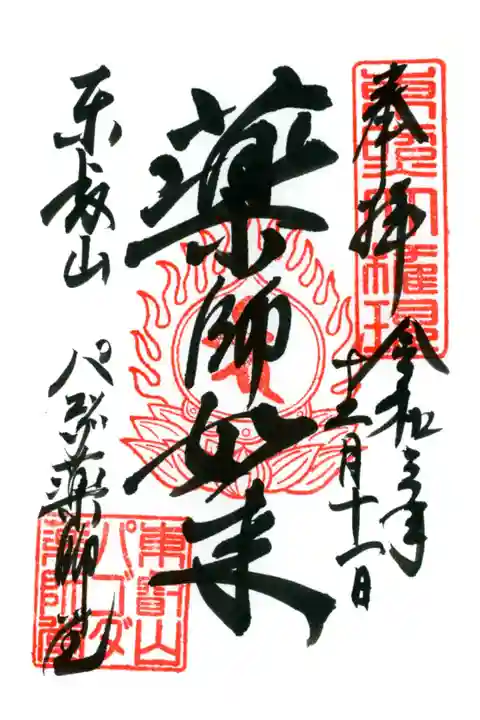 奉拝 令和三年
十二月十一日
東照大権現
薬師如来
東叡山 パゴダ薬師堂
東叡山
パゴダ
薬師堂